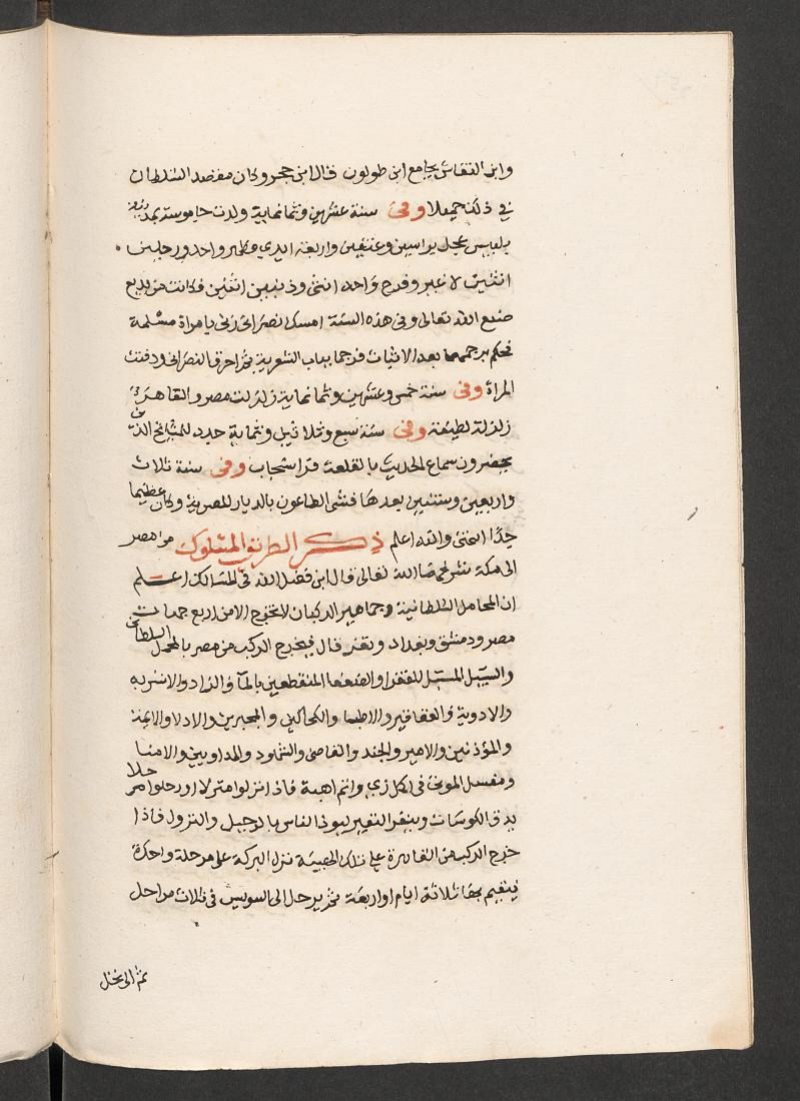 وابن النقاش بجامع ابن طولون قال ابن حجر وكان مقصد السلطان
في ذلك جميلا وفي سنة عشرين وثمانماية ولدت جاموسة بمدينة
بلبيس عجل براسين وعنقين واربعة ايدي وظهر واحد ورجلين
اثنتين لا غير وفرج واحد انثى وذنبين اثنين فكانت من بديع
صنع الله تعالى وفي هذه السنة امسك نصراني زنى بامراة مسلمة
فحكم برجمهما بعد الاثبات فرجما بباب الشعرية ثم احرق النصراني ودفنت
المراة وفي سنة خمس وعشرين وثمانماية زلزلت مصر والقاهرة
زلزلة لطيفة وفي سنة سبع وثلاثين وثماية جدد للمشايخ الذين
يحضرون سماع الحديث بالقلعة فرا سنجاب وفي سنة ثلاث
واربعين وسنتين بعدها فشى الطاعون بالديار المصرية وكان عظيما
جدا انتهى والله اعلم ذكر الطريق المسلوك من مصر
الى مكة شرفها الله تعالى قال ابن فضل الله في المسالك اعلم
ان المحامل السلطانية وجماهير الركبان لا تخرج الا من اربع جهات
مصر ودمشق وبغداد وتعز قال فيخرج الركب من مصر بالمحمل السلطاني
والسبيل المسبل للفقرا والضعفا المنقطعين بالما والزاد والاشربة
والادوية والعقاقير والاطبا والكحالين والمجبرين والادلا والايمة
والمؤذنين والامير والجند والقاضي والشهود والدواوين والامنا
ومغسل الموتى في اكمل زي واتم اهبة فاذا نزلوا منزلا او رحلوا مرحلا
بدق الكوسات وينفر النفير ليوذن الناس بالرحيل والنزول فاذا
خرج الركب من القاهرة على تلك الهيئة نزل البركة على مرحلة واحدة
فيقيم بها ثلاثة ايام او اربعة ثم يرحل الى السويس في ثلاث مراحل
ثم الى نخل